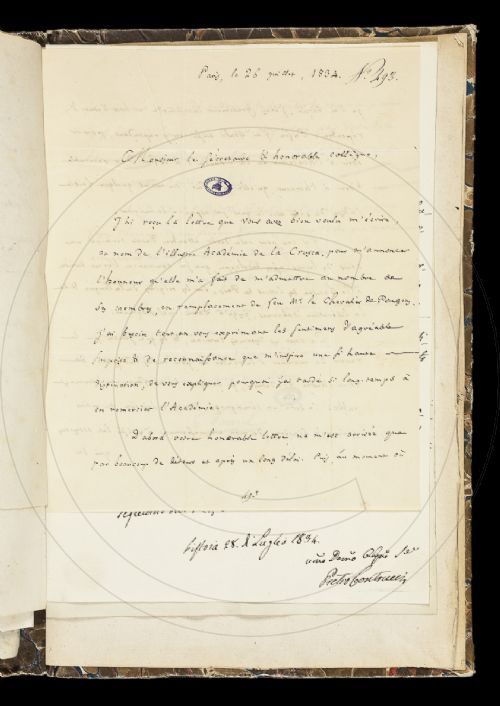 Paris, le 26 juillet, 1834. N.º 293.
Monsieur le secrétaire & honorable collègue,
J'ai reçu la lettre que vous avez bien voulu m'écrire,
au nom de l'illustre Académie de la Crusca, pour m'annoncer
l'honneur qu'elle m'a fait de m'admettre au nombre de
ses membres, en remplacement de feu Mr. le Chevalier de Pougens.
J'ai besoin tout en vous exprimant les sentimens d'agréable
surprise & de reconnaissance que m'inspire une si haute
distinction, de vous expliquer pourquoi j'ai tardé si long-temps à
en remercier l'Académie.
D'abord votre honorable lettre ne m'est arrivée que
par beaucoup de détours et après un long délai. Puis, au moment où
Pistoia 28. di Luglio 1834.
Pietro Contrucci